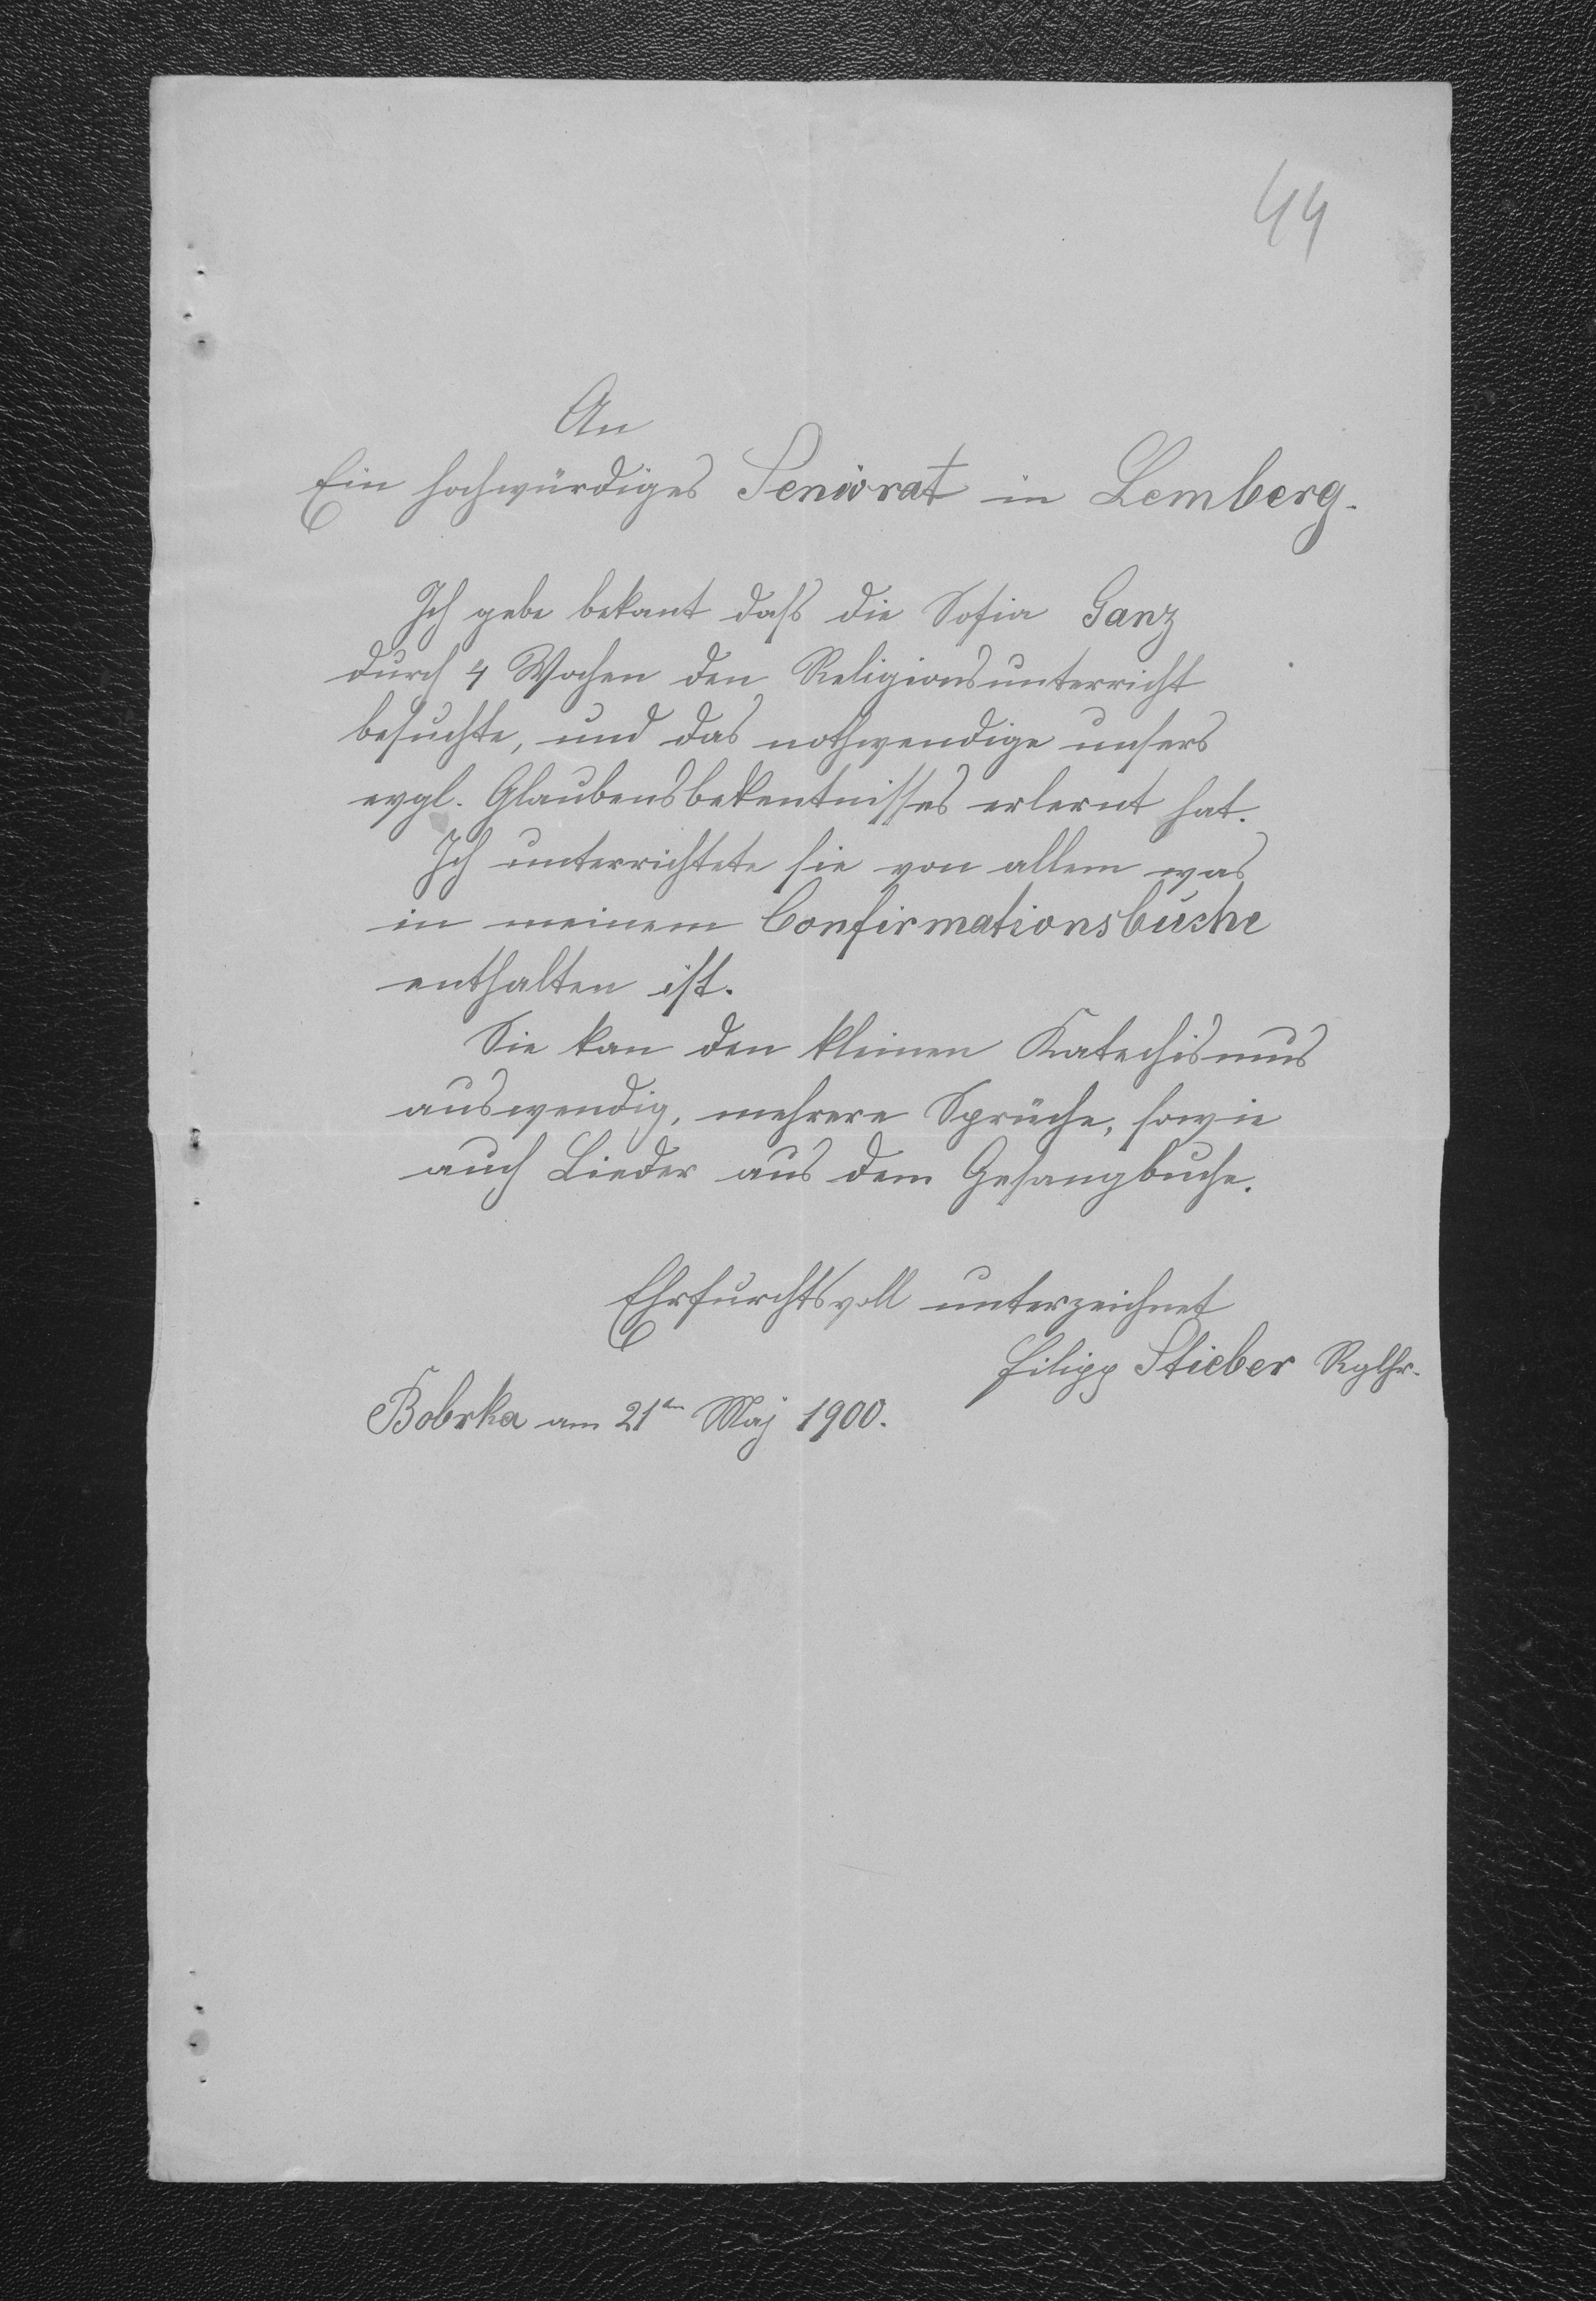 44
An
Ein hochwürdiges Seniorat in Lemberg.
Ich gebe bekant daß die Sofia Ganz
durch 4 Wochen den Religionsunterricht
besuchte, und das nothwendige unsers
evgl. Glaubensbekentnisses erlernt hat.
Ich unterrichtete sie von allem was
in meinem Confirmationsbuche
enthalten ist.
Sie kan den kleinen Katechismus
auswendig, mehrere Sprüche, sowie
auch Lieder aus dem Gesangbuche.
Ehrfurchtsvoll unterzeichnet
Filipp Stieber Rglhr.
Bobrka am 21ten Maj 1900.